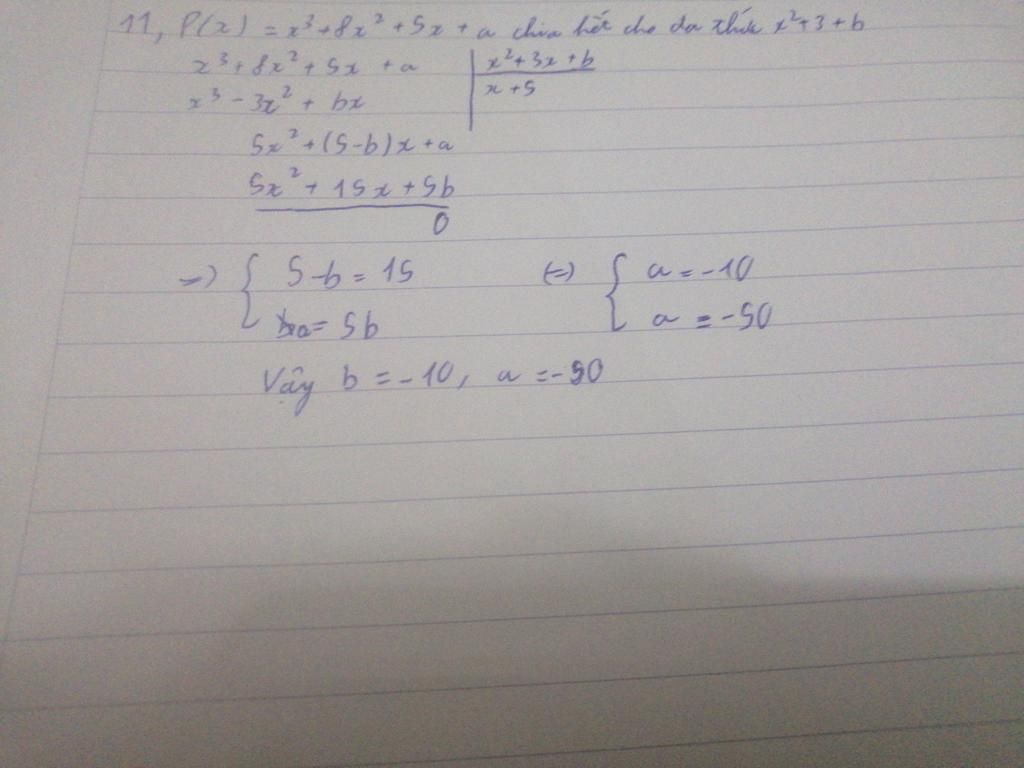 11, P(x) = x³+8x²+5x + a chia hết cho đa thức x²+3+b
x³+8x²+5x +a | x²+3x+b
x³ - 3x² + bx | x+5
5x²+(5-b)x+a
5x²+15x+5b
0
=> { 5-b = 15 (=) { a = -10
a = 5b a = -50
Vậy b = -10, a = -50